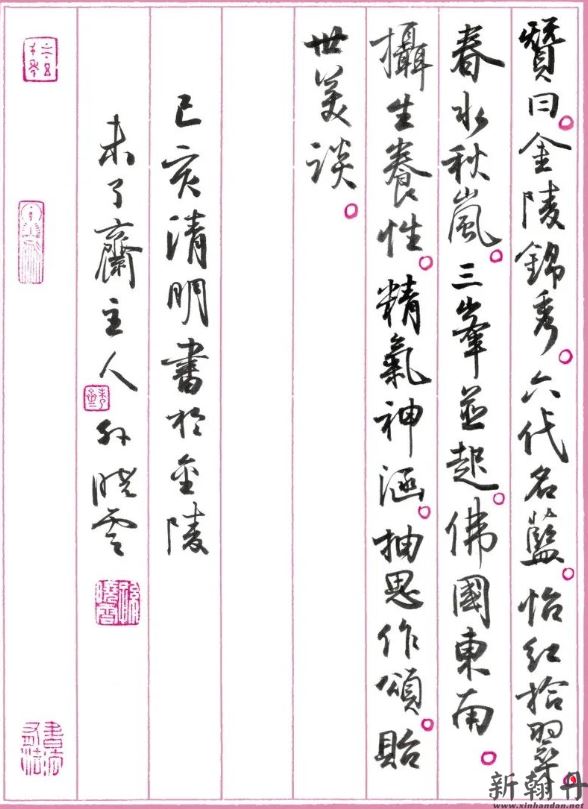 贊曰。金陵錦秀。六代名藍。怡紅拾翠。
春水秋嵐。三峯並起。佛國東南。
攝生養性。精氣神涵。抽思作頌。貽
世美談。
己亥清明書於金陵
未了齋主人孫曉雲
孫曉雲
書有法
新翰丹
www.xinhandan.net